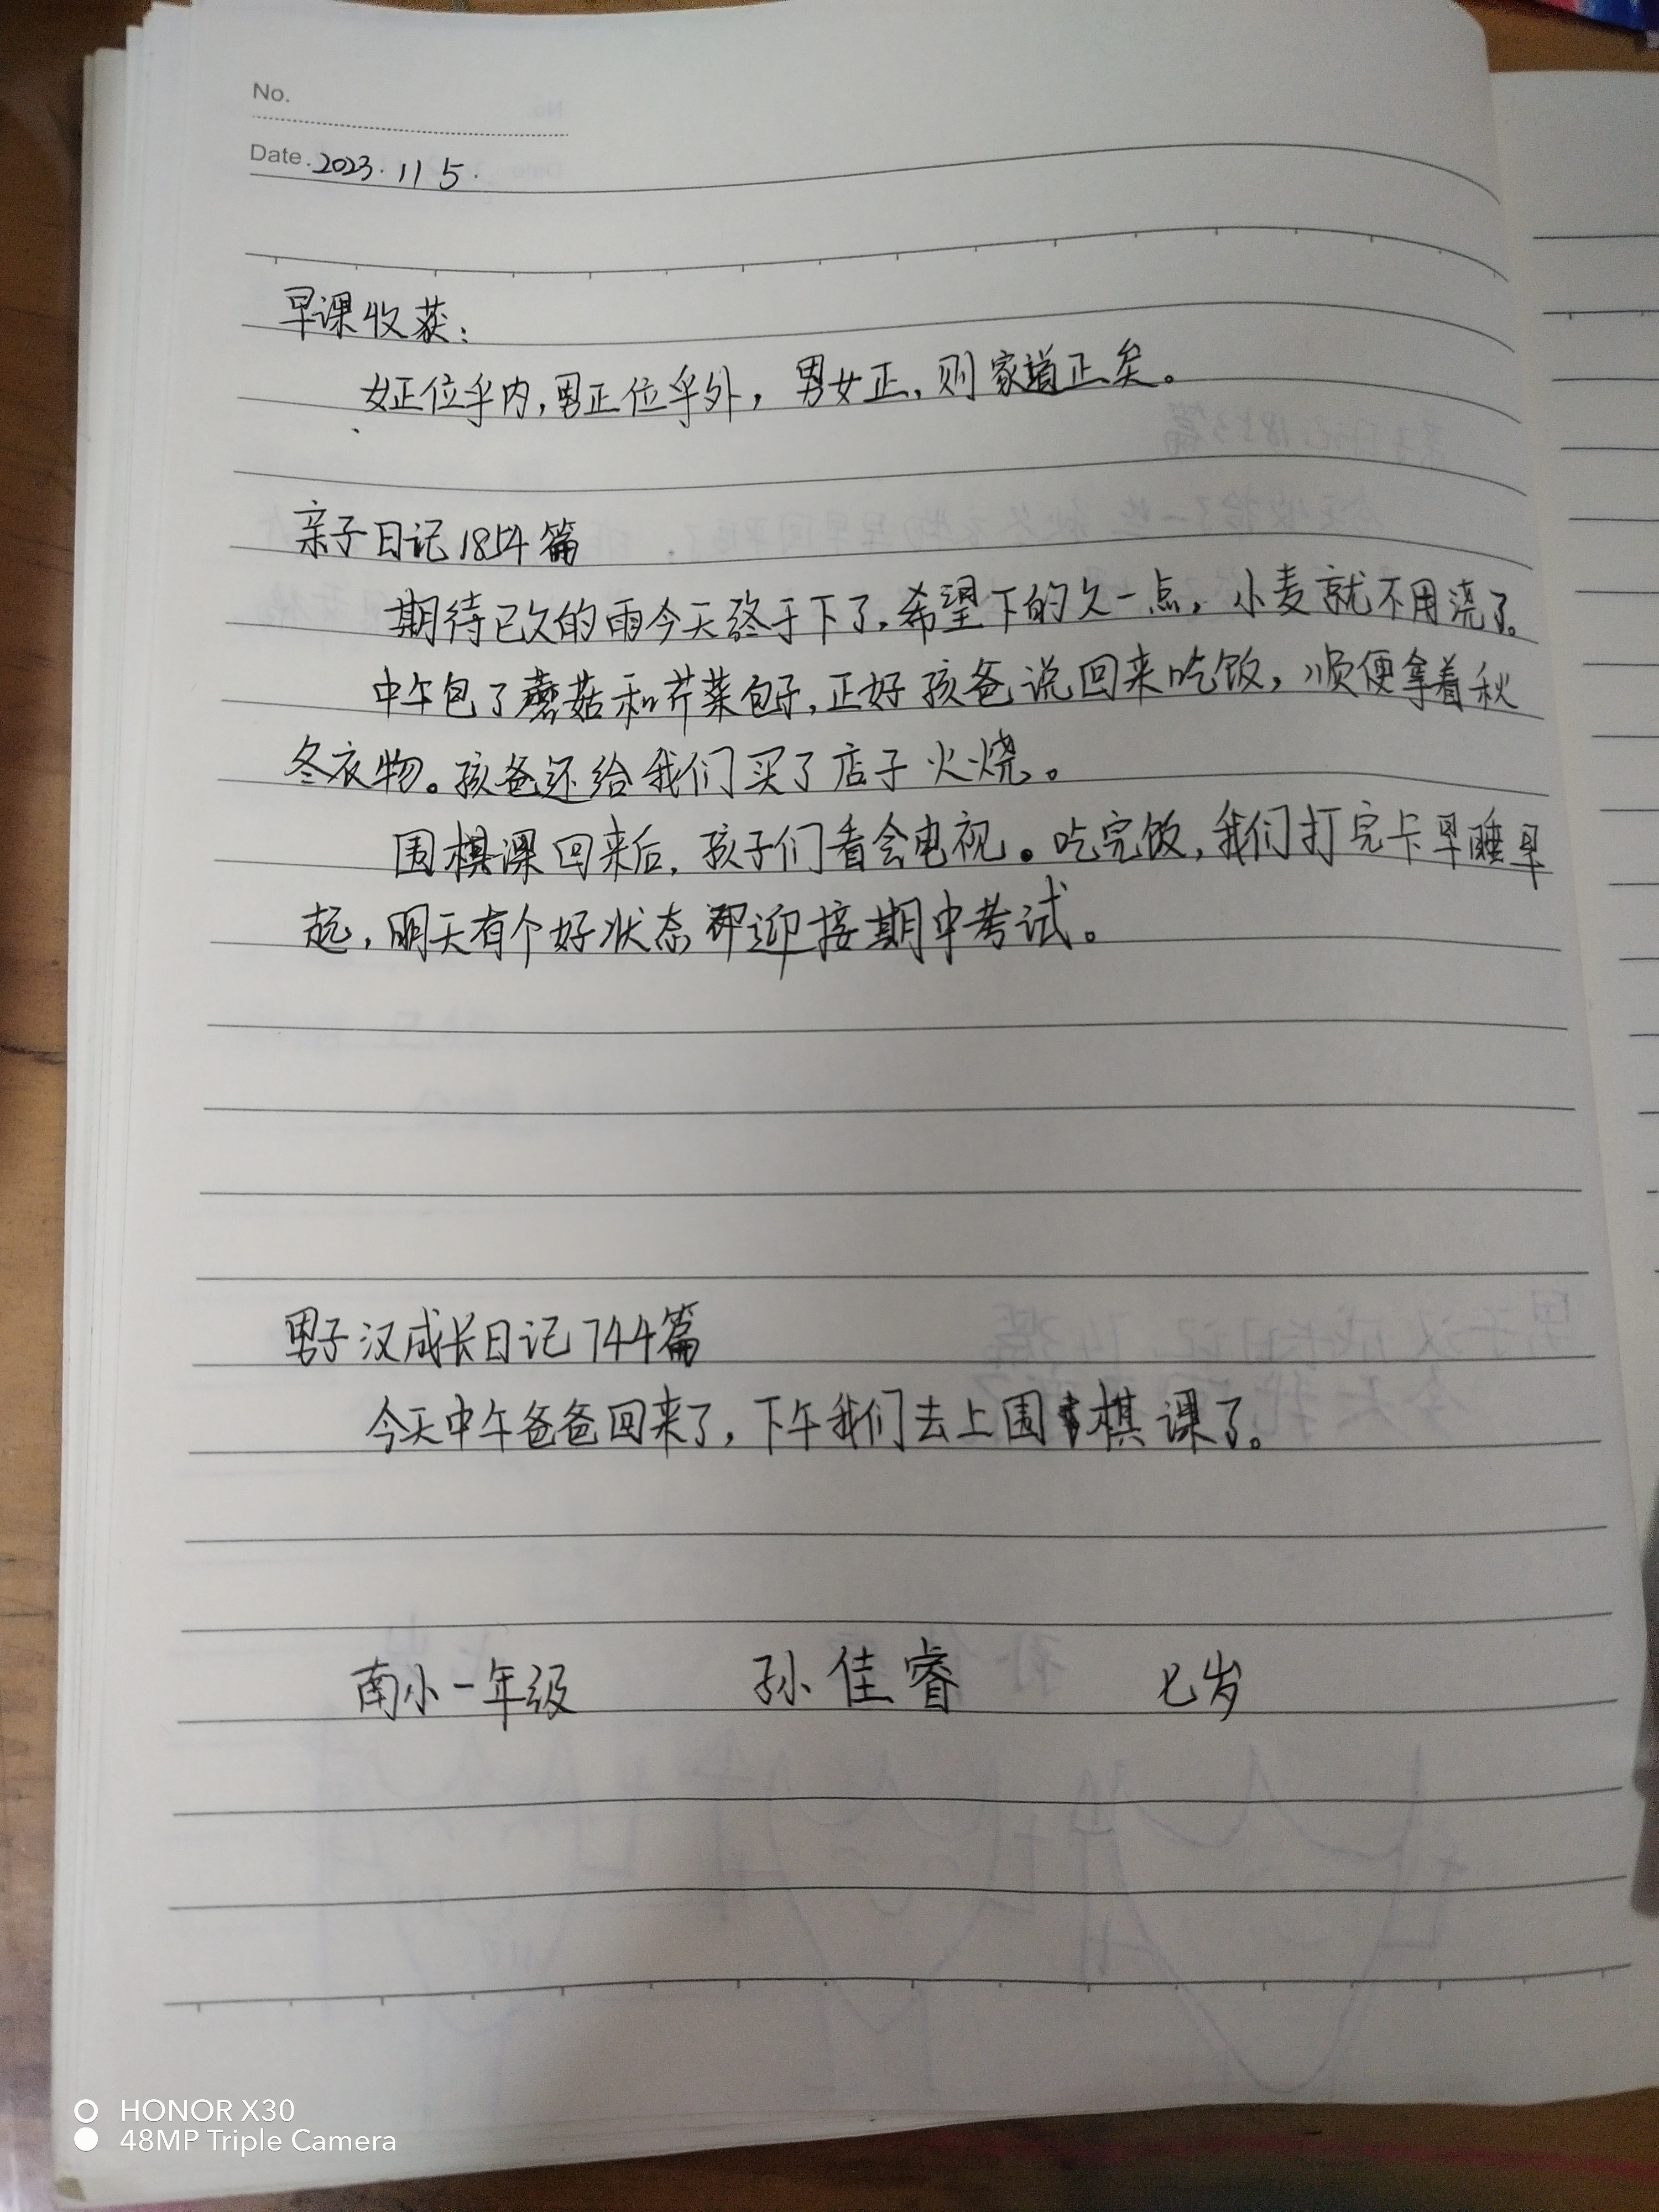 No.
Date. 2023. 11 5.
早课收获:
女正位乎内,男正位乎外,男女正,则家道正矣。
亲子日记1854篇
期待已久的雨今天终于下了,希望下的久一点,小麦就不用浇了。
中午包了蘑菇和芹菜包子,正好孩爸说回来吃饭,顺便拿着秋
冬衣物。孩爸还给我们买了店子火烧。
围棋课回来后,孩子们看会电视。吃完饭,我们打完卡早睡早
起,明天有个好状态迎接期中考试。
男子汉成长日记744篇
今天中午爸爸回来了,下午我们去上围棋课了。
南小一年级 孙佳睿 七岁
HONOR X30
48MP Triple Camera